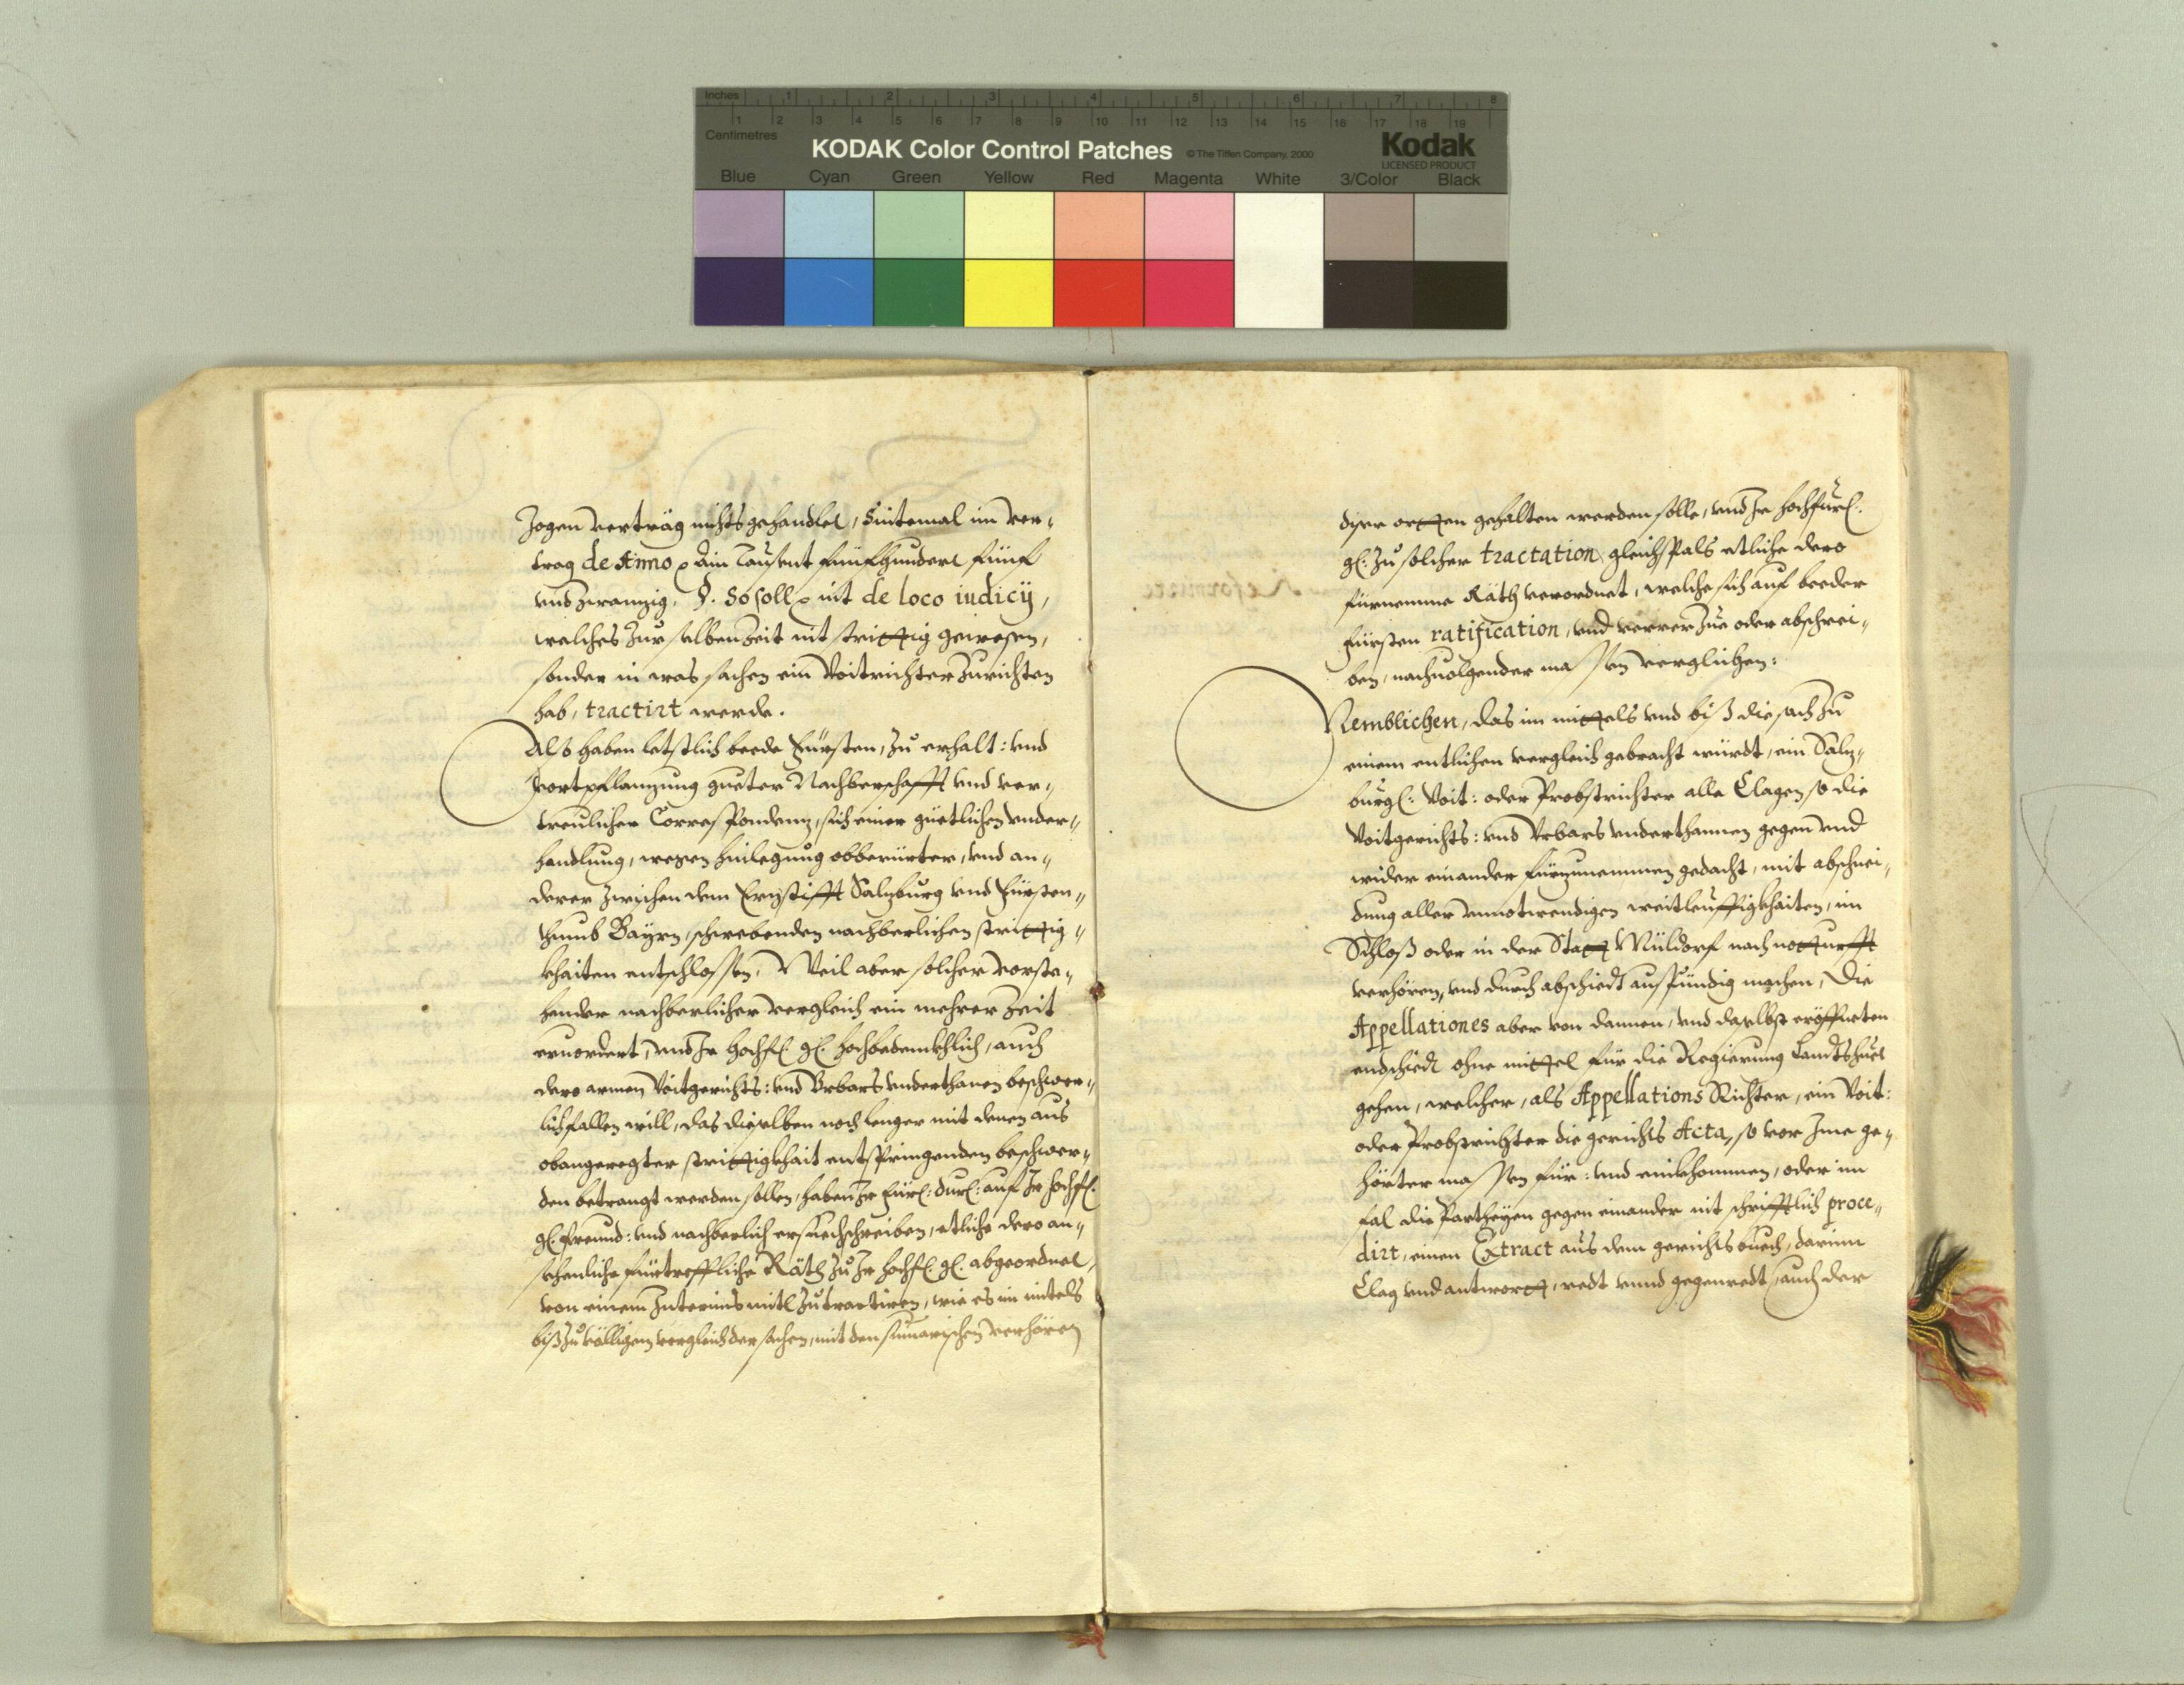 Inches 1 2 3 4 5 6 7 8
Centimetres 1 2 3 4 5 6 7 8 9 10 11 12 13 14 15 16 17 18 19
KODAK Color Control Patches © The Tiffen Company, 2000 Kodak
LICENSED PRODUCT
Blue Cyan Green Yellow Red Magenta White 3/Color Black
zogen verträg nichts gehandlet, Sintemal im ver„
trag de Anno Ain Tausent fünfhundert fünf
vnd zwanzig, §. So soll nit de loco iudicÿ,
welches zur selben Zeit nit strittig gewesen,
sonder in was sachen ein Voitrichter zurichten
hab, tractirt werde.
Als haben letstlich beede Fürsten, zu erhalt: vnd
fortpflanzung gueter Nachberschafft vnd ver„
treulicher Correspondenz, sich einer güetlichen vnder„
handlung, wegen hinlegung obberürter, vnd an„
derer zwischen dem Erzstifft Salzburg vnd Fürsten„
thumb Bayrn, schwebenden nachberlichen strittig„
khaiten entschlossen, Weil aber solcher vorste„
hender nachberlicher vergleich ein mehrer Zeit
eruordert, vnd Ir hochf. g. hochbedenkhlich, auch
dero armen Voitgerichts: vnd Vrbars vnderthanen beschwer„
lich fallen will, das dieselben noch lenger mit denen aus
obangeregter strittigkhait entspringenden beschwer„
den betrangt werden sollen, haben Ir Fürl: Durl: auf Ir hochf.
g. freund: vnd nachberlich ersuechschreiben, etliche dero an„
sehenliche fürtreffliche Räth zu Ir hochf. g. abgeordnet,
von einem Interims mitl zu tractiren, wie es im mitels
biß zu völligem vergleich der sachen, mit den sumarischen verhören
diser orten gehalten werden solle, vnd Ir hochfürl.
g. zu solcher tractation, gleichfals etliche dero
fürnemme Räth verordnet, welche sich auf beeder
Fürsten ratification, vnd verrer zue oder abschrei„
ben, nachuolgender massen verglichen:
Nemblichen, das im mittels vnd biß die sach zu
einem entlichen vergleich gebracht würdt, ein Salz„
burgl: Voit: oder Probstrichter alle Clagen so die
Voitgerichts: vnd Vrbars vnderthannen gegen vnd
wider einander fürzunemmen gedacht, mit abschnei„
dung aller vnnotwendigen weitleuffigkhaiten, im
Schloß oder in der Statt Müldorf nach notturfft
verhören, vnd durch abschiedt ausfündig machen, Die
Appellationes aber von dannen, vnd daselbst eröffneten
endschiedt ohne mittel für die Regierung Landtshuet
gehen, welcher, als Appellations Richter, ein Voit:
oder Probstrichter die gerichts Acta, so vor Ime ge„
hörter massen für: vnd einkhommen, oder im
fal die Partheyen gegen einander nit schrifftlich proce„
dirt, einen Extract aus dem gerichts buech, darinn
Clag vnd antwort, redt vnnd gegenredt, auch der